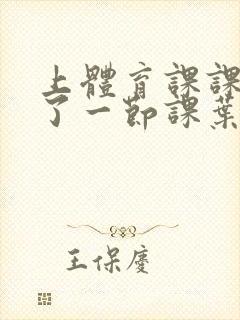 上體育課課
了一節課葉
王保慶